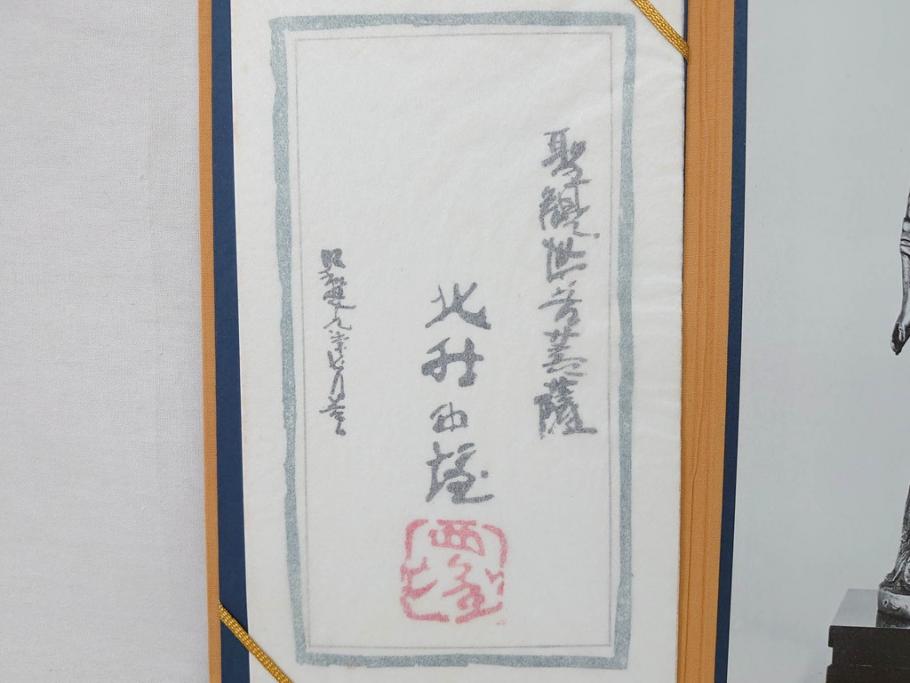 聖観世音菩薩
北村西望
昭和 九年 月吉日
西望